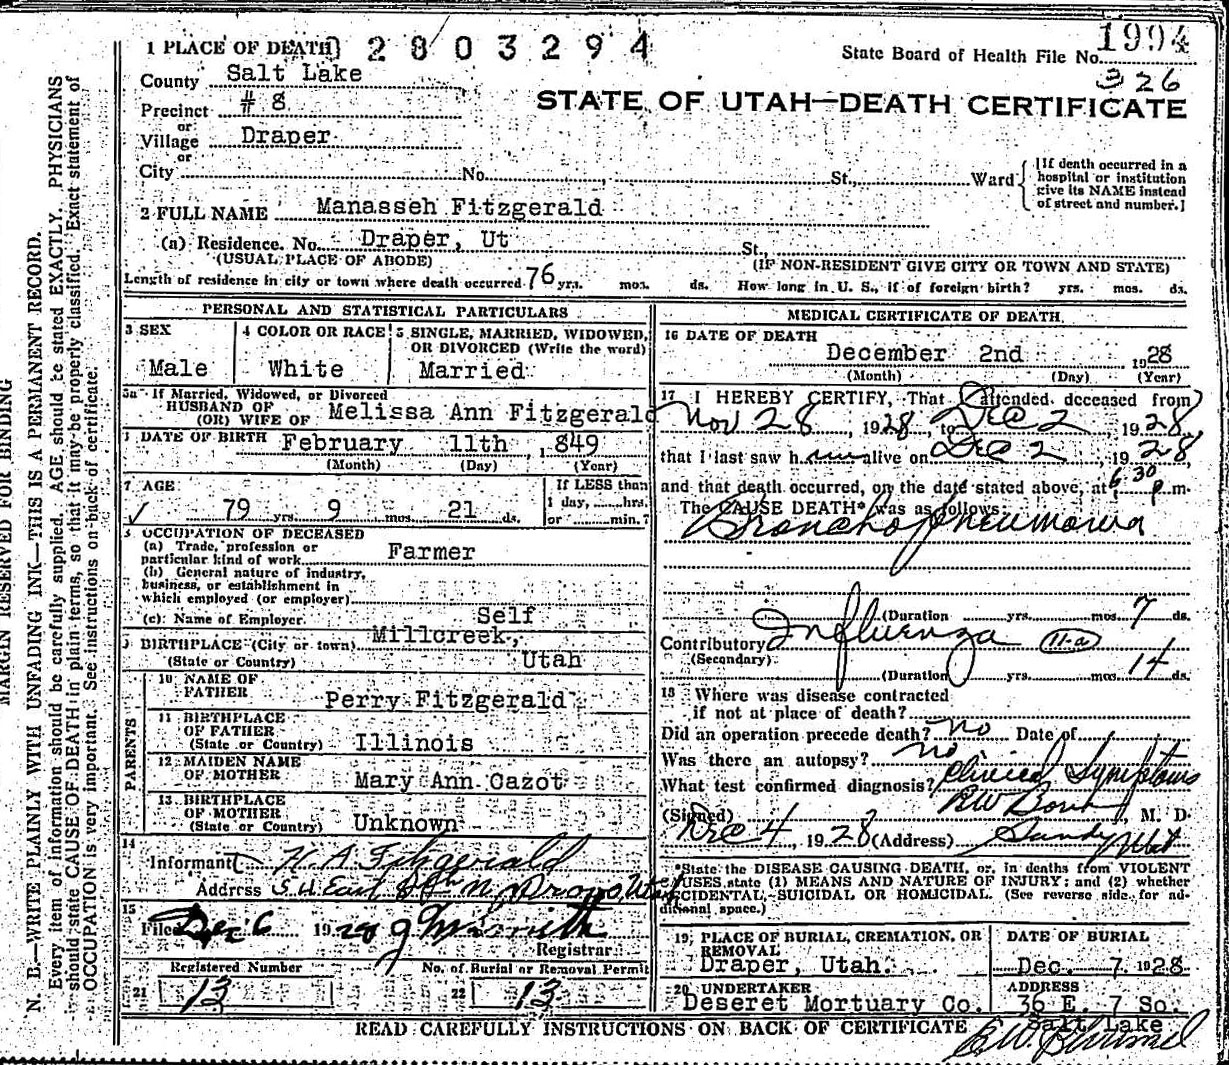 1 PLACE OF DEATH 0 2 8 0 3 2 9 4
State Board of Health File No. 1994
326
County Salt Lake
Precinct # 8
STATE OF UTAH—DEATH CERTIFICATE
or
Village Draper
or
City No. St., Ward
[If death occurred in a
hospital or institution
give its NAME instead
of street and number.]
2 FULL NAME Manasseh Fitzgerald
(a) Residence. No. Draper, Ut St.
(USUAL PLACE OF ABODE) (IF NON-RESIDENT GIVE CITY OR TOWN AND STATE)
Length of residence in city or town where death occurred 76 yrs. mos. ds. How long in U. S., if of foreign birth? yrs. mos. ds.
PERSONAL AND STATISTICAL PARTICULARS
3 SEX
Male
4 COLOR OR RACE
White
5 SINGLE, MARRIED, WIDOWED,
OR DIVORCED (Write the word)
Married
5a If Married, Widowed, or Divorced
HUSBAND OF
(OR) WIFE OF Melissa Ann Fitzgerald
DATE OF BIRTH February 11th, 849
(Month) (Day) (Year)
7 AGE
79 yrs. 9 mos. 21 ds.
If LESS than
1 day, hrs.
or min.?
OCCUPATION OF DECEASED
(a) Trade, profession or
particular kind of work Farmer
(b) General nature of industry,
business, or establishment in
which employed (or employer)
(c) Name of Employer Self
BIRTHPLACE (City or town) Millcreek,
(State or Country) Utah
PARENTS
10 NAME OF
FATHER Perry Fitzgerald
11 BIRTHPLACE
OF FATHER
(State or Country) Illinois
12 MAIDEN NAME
OF MOTHER Mary Ann Cazot
13 BIRTHPLACE
OF MOTHER
(State or Country) Unknown
14
Informant H. A. Fitzgerald
Address
15
Filed Dec 6 1928
Registrar
Registered Number
21 13
No. of Burial or Removal Permit
22 13
MEDICAL CERTIFICATE OF DEATH
16 DATE OF DEATH
December 2nd 1928
(Month) (Day) (Year)
17 I HEREBY CERTIFY, That I attended deceased from
Nov 28, 1928, to Dec 2, 1928,
that I last saw him alive on Dec 2, 1928,
and that death occurred, on the date stated above, at 6-30 p.m.
The CAUSE DEATH* was as follows:
Broncho pneumonia
(Duration yrs. mos. 7 ds.
Contributory Influenza 11-a
(Secondary)
(Duration yrs. mos. 14 ds.
18 Where was disease contracted
if not at place of death?
Did an operation precede death? No Date of
Was there an autopsy? No
What test confirmed diagnosis? Clinical Symptoms
(Signed) M. D.
Dec 4, 1928 (Address) Sandy Utah
*State the DISEASE CAUSING DEATH, or, in deaths from VIOLENT
CAUSES, state (1) MEANS AND NATURE OF INJURY; and (2) whether
ACCIDENTAL, SUICIDAL OR HOMICIDAL. (See reverse side for ad-
ditional space.)
19 PLACE OF BURIAL, CREMATION, OR
REMOVAL
Draper, Utah.
DATE OF BURIAL
Dec. 7, 1928
20 UNDERTAKER
Deseret Mortuary Co.
ADDRESS
36 E. 7 So.
Salt Lake
READ CAREFULLY INSTRUCTIONS ON BACK OF CERTIFICATE
MARGIN RESERVED FOR BINDING
N. B.—WRITE PLAINLY WITH UNFADING INK—THIS IS A PERMANENT RECORD.
Every item of information should be carefully supplied. AGE should be stated EXACTLY. PHYSICIANS
should state CAUSE OF DEATH in plain terms, so that it may be properly classified. Exact statement of
OCCUPATION is very important. See instructions on back of certificate.